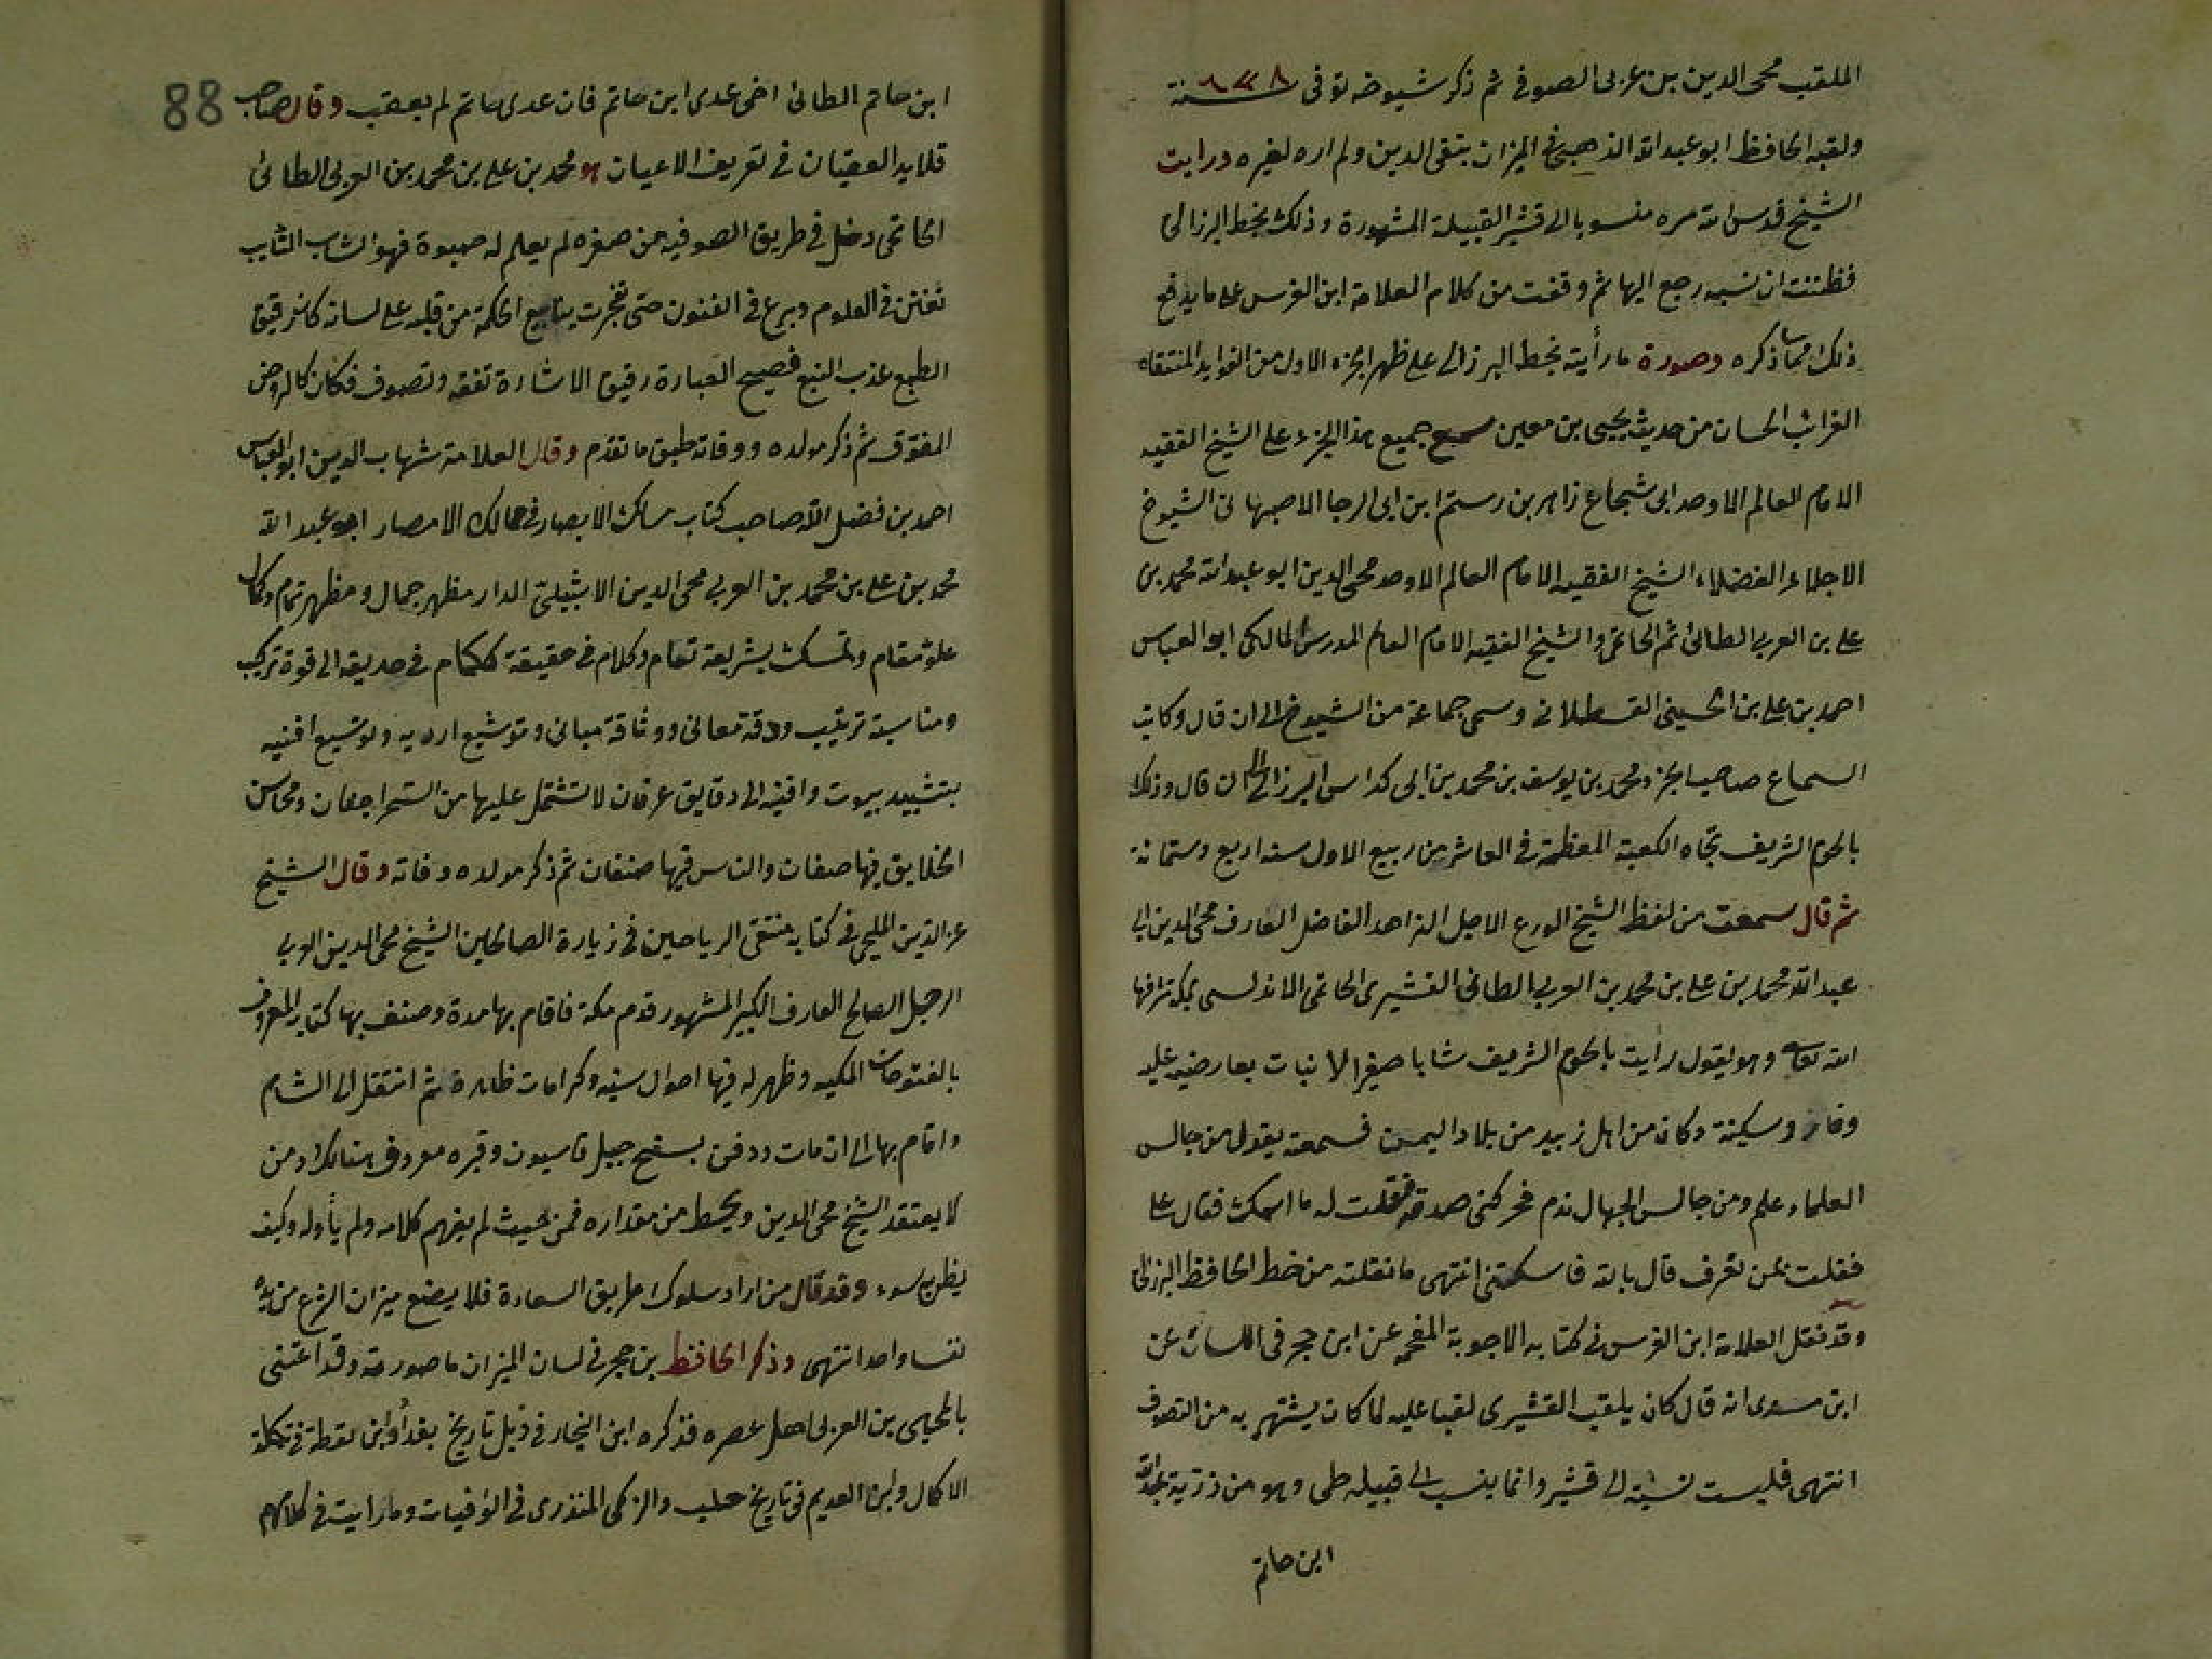 الملقب محى الدين بن عربى الصوفى ثم ذكر شيوخه توفى سنة ٦٣٨
ولقبه الحافظ ابو عبد الله الذهبى فى الميزان بتقى الدين ولم اره لغيره ورايت
الشيخ قدس الله سره منسوبا الى قشير القبيلة المشهورة وذلك بخط البرزالى
فظننت ان نسبه رجع اليها ثم وقفت من كلام العلامة ابن الغرس على ما يدفع
ذلك مما ذكره وصورة ما رأيته بخط البرزالى على ظهر الجزء الاول من الفوايد المنتقاه
الغرائب الحسان من حديث يحيى بن معين سمع جميع هذا الجزء على الشيخ الفقيه
الامام العالم الاوحد ابى شجاع زاهر بن رستم ابن ابى الرجا الاصبهانى الشيوخ
الاجلاء الفضلاء الشيخ الفقيه الامام العالم الاوحد محى الدين ابو عبد الله محمد بن
على بن العربى الطائى ثم الحاتمى والشيخ الفقيه الامام العالم المدرس المالكى ابو العباس
احمد بن على بن الحسينى القسطلانى وسمى جماعة من الشيوخ الى ان قال وكاتب
السماع صاحب الجزء محمد بن يوسف بن محمد بن ابى يداس البرزالى الى ان قال وذلك
بالحرم الشريف تجاه الكعبة المعظمة فى العاشر من ربيع الاول سنه اربع وستمائة
ثم قال سمعت من لفظ الشيخ الورع الاجل الزاهد الفاضل العارف محى الدين ابى
عبد الله محمد بن على بن محمد بن العربى الطائى القشيرى الحاتمى الاندلسى بمكة شرفها
الله تعالى وهو يقول رأيت بالحرم الشريف شابا صغيرا لا نبات بعارضيه عليه
وقار وسكينة وكان من اهل زبيد من بلاد اليمن فسمعته يقول من جالس
العلماء علم ومن جالس الجهال ندم فحركنى صدقه فقلت له ما اسمك فقال على
فقلت بمن تعرف قال بالله فاسكتنى انتهى ما نقلته من خط الحافظ البرزالى
وقد نقل العلامة ابن الغرس فى كتابه الاجوبة المفحمه عن ابن حجر فى اللسان عن
ابن مسدى انه قال كان يلقب القشيرى لقبا عليه لما كان يشتهر به من التصوف
انتهى فليست نسبته الى قشير وانما ينسب الى قبيله طى وهو من ذرية عبد الله
ابن حاتم
88
ابن حاتم الطائى اخى عدى ابن حاتم فان عدى حاتم لم يعقب وقال صاحب
قلايد العقيان فى تعريف الاعيان هو محمد بن على بن محمد بن العربى الطائى
الحاتمى دخل فى طريق الصوفيه من صغره لم يعلم له صبوة فهو الشاب التايب
تفنن فى العلوم وبرع فى الفنون حتى تفجرت ينابيع الحكمة من قلبه على لسانه كان رقيق
الطبع عذب النبع فصيح العبارة رقيق الاشارة تفقه وتصوف فكان كالروض
المفوف ثم ذكر مولده ووفاته طبق ما تقدم وقال العلامة شهاب الدين ابو العباس
احمد بن فضل الله صاحب كتاب مسالك الابصار فى ممالك الامصار ابو عبد الله
محمد بن على بن محمد بن العربى محى الدين الاشبيلى الدار مظهر جمال ومظهر تمام وكمال
علو مقام وتمسك بشريعة تعام وكلام فى حقيقة ككمام فى حديقه الى قوة تركيب
ومناسبة ترتيب ودقة معانى ووثاقة مبانى وتوشيع ارديه وتوسيع افنيه
بتشييد بيوت وافيه الى دقايق عرفان لا تشتمل عليها من السحر اجفان ومحاسن
الخلايق فيها صفات والناس فيها صنفان ثم ذكر مولده وفاته وقال الشيخ
عز الدين المليحى فى كتابه منتقى الرياحين فى زيارة الصالحين الشيخ محى الدين العربى
الرجل الصالح العارف الكبير المشهور قدم مكة فاقام بها مدة وصنف بها كتابه المعروف
بالفتوحات المكيه وظهر له فيها احوال سنيه وكرامات ظاهرة ثم انتقل الى الشام
واقام بها الى ان مات ودفن بسفح جبل قاسيون وقبره معروف هناك ومن
لا يعتقد الشيخ محى الدين ويحط من مقداره فمن حيث لم يفهم كلامه ولم يأوله وكيف
يظن به سوء وقد قال من اراد سلوك طريق السعادة فلا يضع ميزان الشرع من يده
نفسا واحدا انتهى وذكر الحافظ بن حجر فى لسان الميزان ما صورته وقد اعتنى
بالمحيى بن العربى اهل عصره فذكره ابن النجار فى ذيل تاريخ بغداد وابن نقطة فى تكملة
الاكمال وابن العديم فى تاريخ حلب والزكى المنذرى فى الوفيات وما رايت فى كلامهم